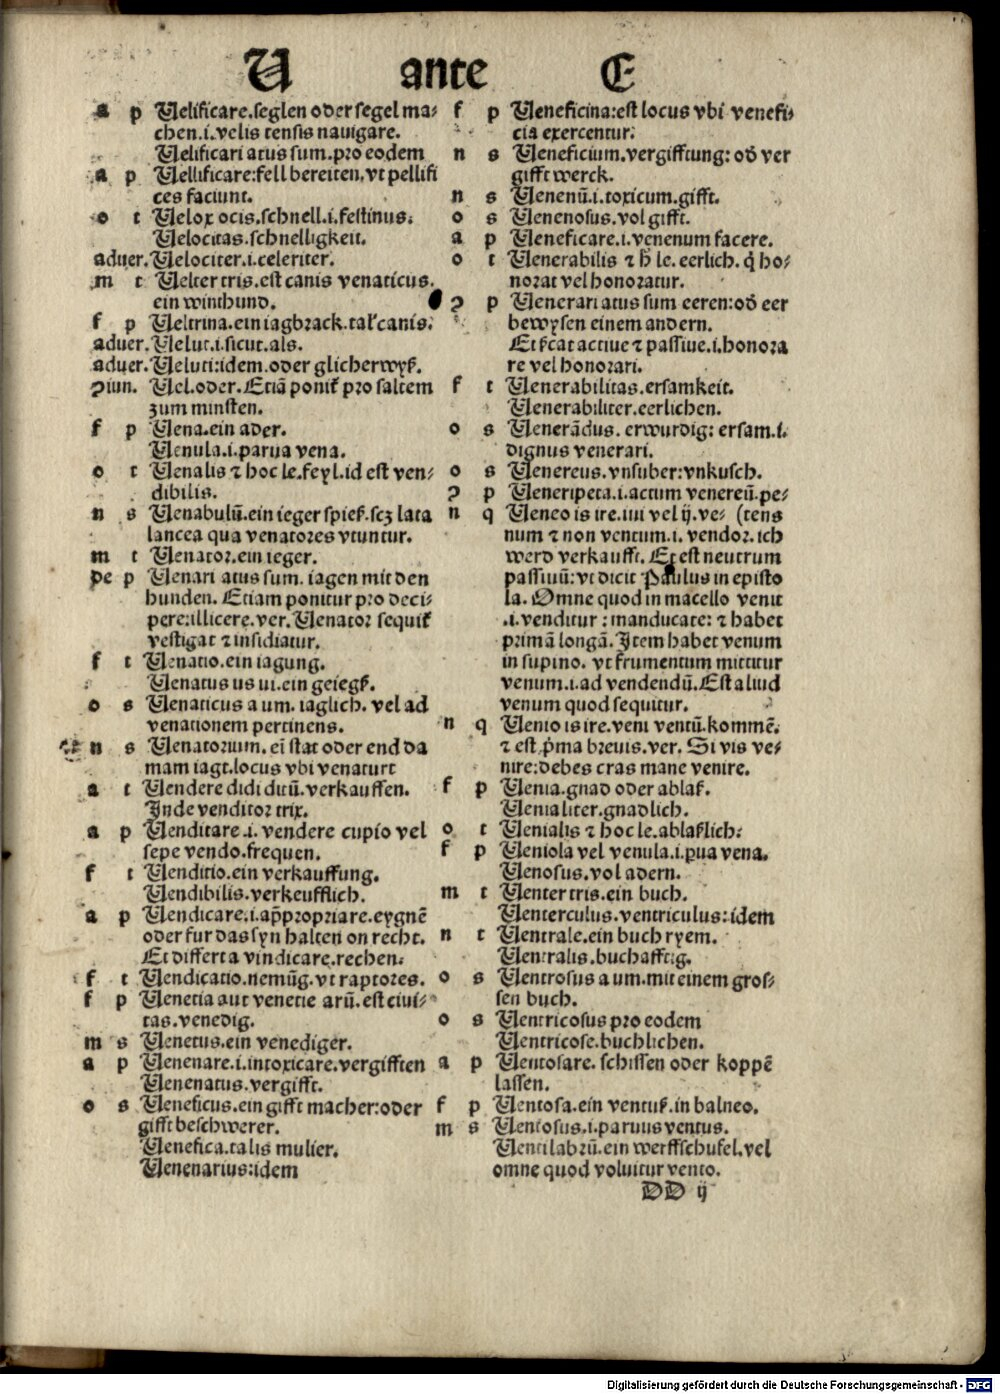 U ante E
a p Uelificare.seglen oder segel ma⸗
chen.i.velis tensis nauigare.
Uelificari atus sum.pro eodem
a p Uellificare:fell bereiten.vt pellifi
ces faciunt.
o t Uelox ocis.schnell.i.festinus.
Uelocitas.schnelligkeit.
aduer. Uelociter.i.celeriter.
m t Uelter tris.est canis venaticus.
ein winthund.
f p Ueltrina.ein iagbrack.tal' canis.
aduer. Uelut.i.sicut.als.
aduer. Ueluti:idem.oder glicherwyß.
ꝯiun. Uel.oder.Etiā ponit̃ pro saltem
zum minsten.
f p Uena.ein ader.
Uenula.i.parua vena.
o t Uenalis ⁊ hoc le.feyl.id est ven⸗
dibilis.
n s Uenabulū.ein ieger spieß.scꝫ lata
lancea qua venatores vtuntur.
m t Uenator.ein ieger.
pe p Uenari atus sum. iagen mit den
hunden. Etiam ponitur pro deci⸗
pere:illicere.ver.Uenator sequit̃
vestigat ⁊ insidiatur.
f t Uenatio.ein iagung.
Uenatus us ui.ein geiegß.
o s Uenaticus a um. iaglich. vel ad
venationem pertinens.
n s Uenatorium. ei̅ stat oder end da
mam iagt.locus vbi venaturt
a t Uendere didi ditū.verkauffen.
Inde venditor trix.
a p Uenditare.i. vendere cupio vel
sepe vendo.frequen.
f t Uenditio.ein verkauffung.
Uendibilis.verkeufflich.
a p Uendicare.i.aꝓpropriare.eygnē
oder fur das syn halten on recht.
Et differt a vindicare.rechen.
f t Uendicatio.nemūg.vt raptores.
f p Uenetia aut venetie arū.est ciui⸗
tas.venedig.
m s Uenetus.ein venediger.
a p Uenenare.i.intoxicare.vergifften
Uenenatus.vergifft.
o s Ueneficus.ein gifft macher:oder
gifft beschwerer.
Uenefica.talis mulier.
Uenenarius:idem
f p Ueneficina:est locus vbi venefi⸗
cia exercentur.
n s Ueneficium.vergifftung: od' ver
gifft werck.
n s Uenenū.i.toxicum.gifft.
o s Uenenosus.vol gifft.
a p Ueneficare.i.venenum facere.
o t Uenerabilis ⁊ h̄ le. eerlich. q̇ ho⸗
norat vel honoratur.
ꝯ p Uenerari atus sum eeren:od' eer
bewysen einem andern.
Et ẜcat actiue ⁊ passiue.i.honora
re vel honorari.
f t Uenerabilitas.ersamkeit.
Uenerabiliter.eerlichen.
o s Uenerādus. erwurdig: ersam.i.
dignus venerari.
o s Uenereus.vnsuber:vnkusch.
ꝯ p Ueneripeta.i.actum venereū.pe⸗
n q Ueneo is ire.iui vel ij.ve⸗ (tens
num ⁊ non ventum.i. vendor. ich
werd verkaufft. Et est neutrum
passiuū:vt dicit Paulus in episto
la. Omne quod in macello venit
.i.venditur : manducate: ⁊ habet
primā longā. Item habet venum
in supino. vt frumentum mittitur
venum.i.ad vendendū.Est aliud
venum quod sequitur.
n q Uenio is ire.veni ventū.kommē.
⁊ est p̄ma breuis.ver. Si vis ve⸗
nire:debes cras mane venire.
f p Uenia.gnad oder ablaß.
Uenialiter.gnadlich.
o t Uenialis ⁊ hoc le.ablaßlich.
f p Ueniola vel venula.i.ꝑua vena.
Uenosus.vol adern.
m t Uenter tris.ein buch.
Uenterculus.ventriculus:idem
n t Uentrale.ein buch ryem.
Uentralis.buchafftig.
o s Uentrosus a um.mit einem gros⸗
sen buch.
o s Uentricosus pro eodem
Uentricose.buchlichen.
a p Uentosare. schissen oder koppē
lassen.
f p Uentosa.ein ventuß.in balneo.
m s Uentosus.i.paruus ventus.
Uentilabrū.ein werffschufel.vel
omne quod voluitur vento.
DD ij
Digitalisierung gefördert durch die Deutsche Forschungsgemeinschaft - DFG